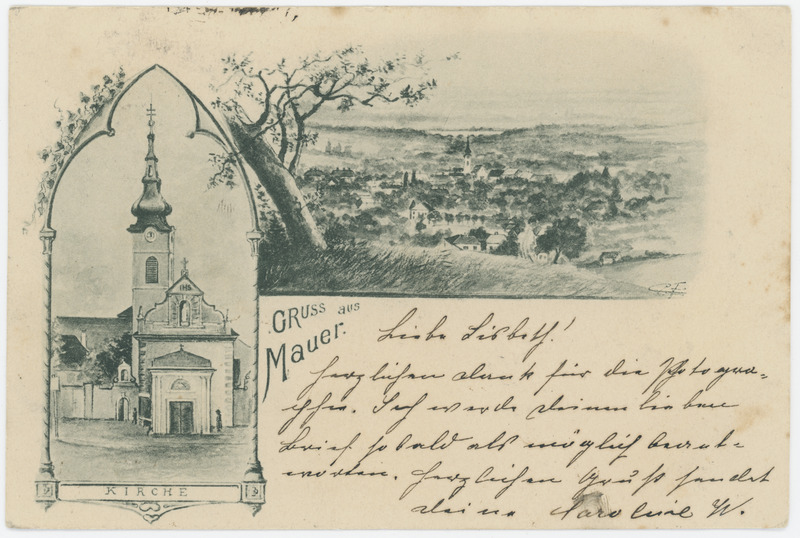 IHS
KIRCHE
GRUSS aus
Mauer.
Liebe Lisbeth!
Herzlichen dank für die Photogra-
phie. Ich werde deinen lieben
Brief so bald als möglich beant-
worten. Herzlichen Gruß sendet
deine Caroline W.